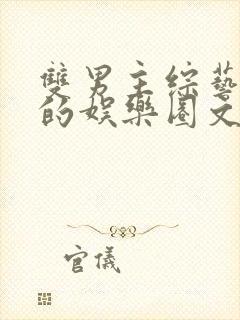 雙男主綜藝
的娛樂圈文
官儀